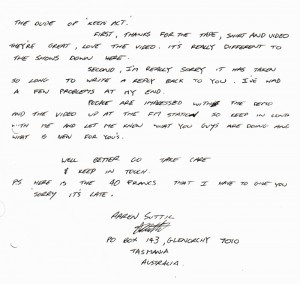 THE DUDE OF "KEEN ACT."
FIRST, THANKS FOR THE TAPE, SHIRT AND VIDEO
THEY'RE GREAT, LOVE THE VIDEO. IT'S REALLY DIFFERENT TO
THE SHOWS DOWN HERE.
SECOND, I'M REALLY SORRY IT HAS TAKEN
SO LONG TO WRITE A REPLY BACK TO YOU. I'VE HAD
A FEW PROBLEMS AT MY END.
PEOPLE ARE IMPRESSED WITH THE DEMO
AND THE VIDEO UP AT THE FM STATION SO KEEP IN
WITH ME AND LET ME KNOW WHAT YOU GUYS ARE DOING AND
WHAT IS NEW FOR YOU'S.
WELL BETTER GO TAKE CARE
& KEEP IN TOUCH.
PS HERE IS THE 40 FRANKS THAT I HAVE TO GIVE YOU
SORRY IT'S LATE.
PO BOX 143, GLENORCHY 7010
TASMANIA
AUSTRALIA.